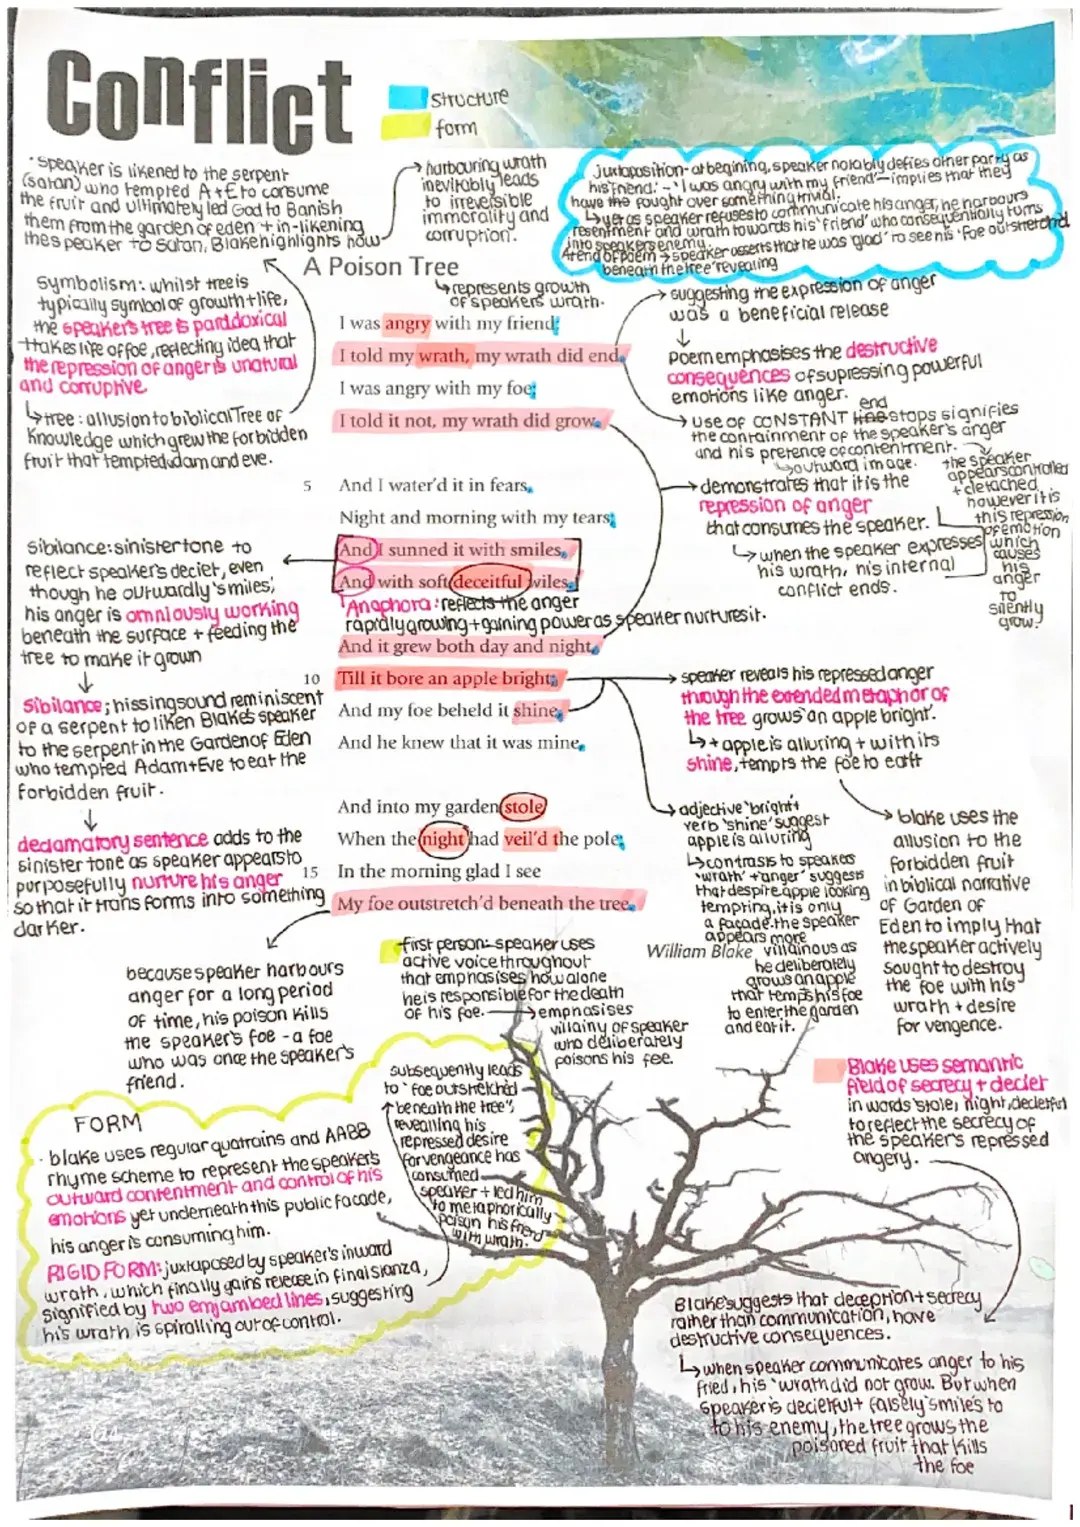 Conflict
structure
form
• Speaker is likened to the serpent
(satan) who tempted A+E to consume
the fruit and ultimately led God to Banish
them from the garden of eden + in-likening
thespeaker to Satan, Blake highlights how
→ harbouring wrath
inevitably leads
to irreversible
immorality and
corruption.
juxtaposition- at begining, speaker notably defies other party as
his 'friend.' - 'I was angry with my friend' - implies that they
have the fought over something trivial.
↳ yet as speaker refuses to communicate his anger, he harbours
resentment and wrath towards his 'friend' who consequentially turns
into speakers enemy.
At end of poem → speaker asserts that he was 'glad' to see his 'foe outstretched
beneath the tree' revealing
A Poison Tree
↳ represents growth
of speakers wrath.
Symbolism: whilst tree is
typically symbol of growth + life,
the speaker's tree is paradoxical
takes life of foe, reflecting idea that
the repression of anger is unatural
and corruptive
↳ tree: allusion to biblical Tree of
Knowledge which grew the forbidden
fruit that tempted adam and eve.
I was angry with my friend;
I told my wrath, my wrath did end.
I was angry with my foe;
I told it not, my wrath did grow.
→ suggesting the expression of anger
was a beneficial release
↓
Poem emphasises the destructive
consequences of supressing powerful
emotions like anger.
end
→ use of CONSTANT line stops signifies
the containment of the speaker's anger
and his pretence of contentment.
↳ outward image.
the speaker
appears controlled
+ detached,
however it is
this repression
of emotion
which
causes
his
anger
to
silently
grow.
→ demonstrates that it is the
repression of anger
that consumes the speaker.
↳ when the speaker expresses
his wrath, his internal
conflict ends.
5 And I water'd it in fears,
Night and morning with my tears;
And I sunned it with smiles,
And with soft deceitful wiles.
Anaphora: reflects the anger
rapidly growing + gaining power as speaker nurtures it.
sibilance: sinister tone to
reflect speaker's deciet, even
though he outwardly 'smiles',
his anger is omniously working
beneath the surface + feeding the
tree to make it grown
↓
Sibilance; hissing sound reminiscent
of a serpent to liken Blake's speaker
to the serpent in the Garden of Eden
who tempted Adam + Eve to eat the
forbidden fruit.
↓
declamatory sentence adds to the
sinister tone as speaker appears to
purposefully nurture his anger
so that it transforms into something
darker.
And it grew both day and night,
10 Till it bore an apple bright;
And my foe beheld it shine,
And he knew that it was mine,
→ speaker reveals his repressed anger
through the extended metaphor of
the tree grows 'an apple bright'.
↳ + apple is alluring + with its
shine, tempts the foe to eat it
And into my garden stole
When the night had veil'd the pole;
15 In the morning glad I see
My foe outstretch'd beneath the tree.
William Blake
→ adjective 'bright' +
verb 'shine' suggest
apple is alluring
↳ contrasts to speakers
'wrath' + 'anger' suggests
that despite apple looking
tempting, it is only
a façade. the speaker
appears more
villainous as
he deliberately
grows an apple
that temps his foe
to enter the garden
and eat it.
→ blake uses the
allusion to the
forbidden fruit
in biblical narrative
of Garden of
Eden to imply that
the speaker actively
sought to destroy
the foe with his
wrath + desire
for vengence.
because speaker harbours
anger for a long period
of time, his poison kills
the speaker's foe - a foe
who was once the speaker's
friend.
first person: speaker uses
active voice throughout
that emphasises how alone
he is responsible for the death
of his foe. → emphasises
villainy of speaker
who deliberately
poisons his foe.
Blake uses semantic
field of secrecy + deciet
in words 'stole, night, decietful
to reflect the secrecy of
the speaker's repressed
angery.
FORM
• blake uses regular quatrains and AABB
rhyme scheme to represent the speaker's
outward contentment and control of his
emotions yet underneath this public facade,
his anger is consuming him.
RIGID FORM: juxtaposed by speaker's inward
wrath, which finally gains release in final stanza,
signified by two enjambed lines, suggesting
his wrath is spiralling out of control.
subsequently leads
to 'foe outstretched
beneath the tree',
revealing his
repressed desire
for vengeance has
consumed
speaker + led him
to metaphorically
poison his friend
with wrath.
Blake suggests that deception + secrecy
rather than communication, have
destructive consequences.
↳ when speaker communicates anger to his
fried, his 'wrath did not grow. But when
speaker is decietful + falsely 'smiles to
to his enemy, the tree grows the
poisoned fruit that kills
the foe